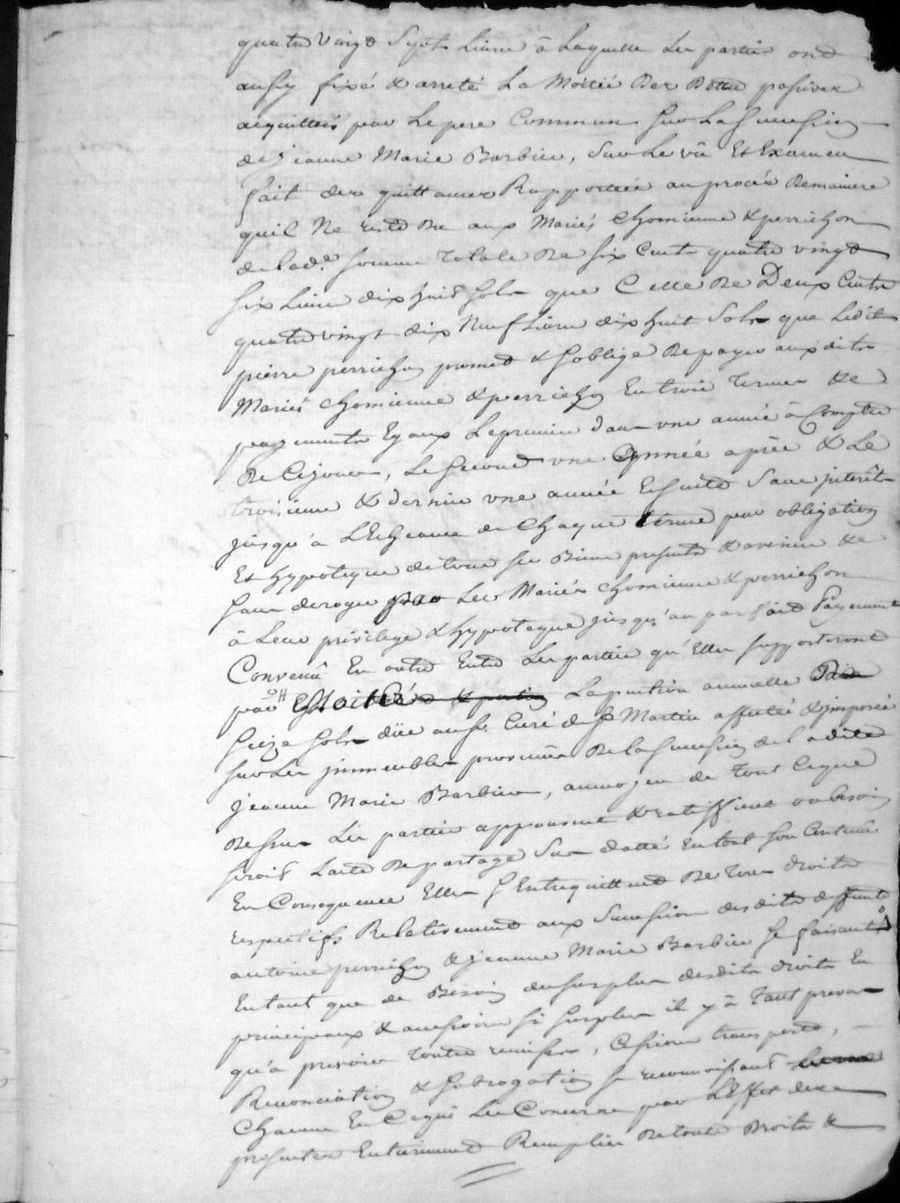 quatre vingt sept Livre à Laquelle Les partie ont
aussy fixé & arreté La Moitié Des Dettes passives
acquittées par Le pere Commun sur La Succession
de jeanne Marie Barbier, Sur Le vû Et Examen
fait des quittances Rapportées au procès De maniere
quil Ne reste Du aux Mariés chomienne & perrichon
de lad.e somme totale De Six Cents quatre vingt
Six Livre dix huit Sols que Celle De Deux Cents
quatre vingt dix Neuf Livre dix huit Sols que Ledit
pierre perrichon promet & S'oblige De payer auxdits
Mariés chomienne & perrichon En trois termes &
payements Egaux Le premier dans une année à Compter
De Ce jour, Le Second une Année après & Le
troisieme & dernier une année Ensuite Sans interêts
jusqu'à L'Echeance de Chaque terme par obligation
Et hypoteque de tous ses Biens presents & avenir &
Sans deroger par Les Mariés chomienne & perrichon
à Leur privilege & hypoteque jusqu'au parfait Payement
Convenû En outre Entre Les partie qu'Elles supporteront
par Moitié La pention annuelle De
Seize Sols düe au Sr. Curé de St Martin affectée & imposée
Sur Les jmmeubles provenus De la Succession de Ladite
jeanne Marie Barbier, au moyen de tout Ce que
Dessus Les partie approuvent & ratiffient au besoin
seroit L'acte De partage Sus datté En tout Son Contenû
En Consequence Elles S'Entrequittent De Tous droits
respectifs Relativement aux Successions desdits deffunts
antoine perrichon & jeanne Marie Barbier Se faisant
En tant que de Besoin du surplus desdits droits En
principaux & accessoires si surplus il y à Tant prevu
qu'à prevoir toutes remises, Cession transport,
Renonciation & Subrogation se reconnoissant
Chacun En Ce qui Les Concerne par L'Effet des
presentes Entierement Remplies De toute Droits &